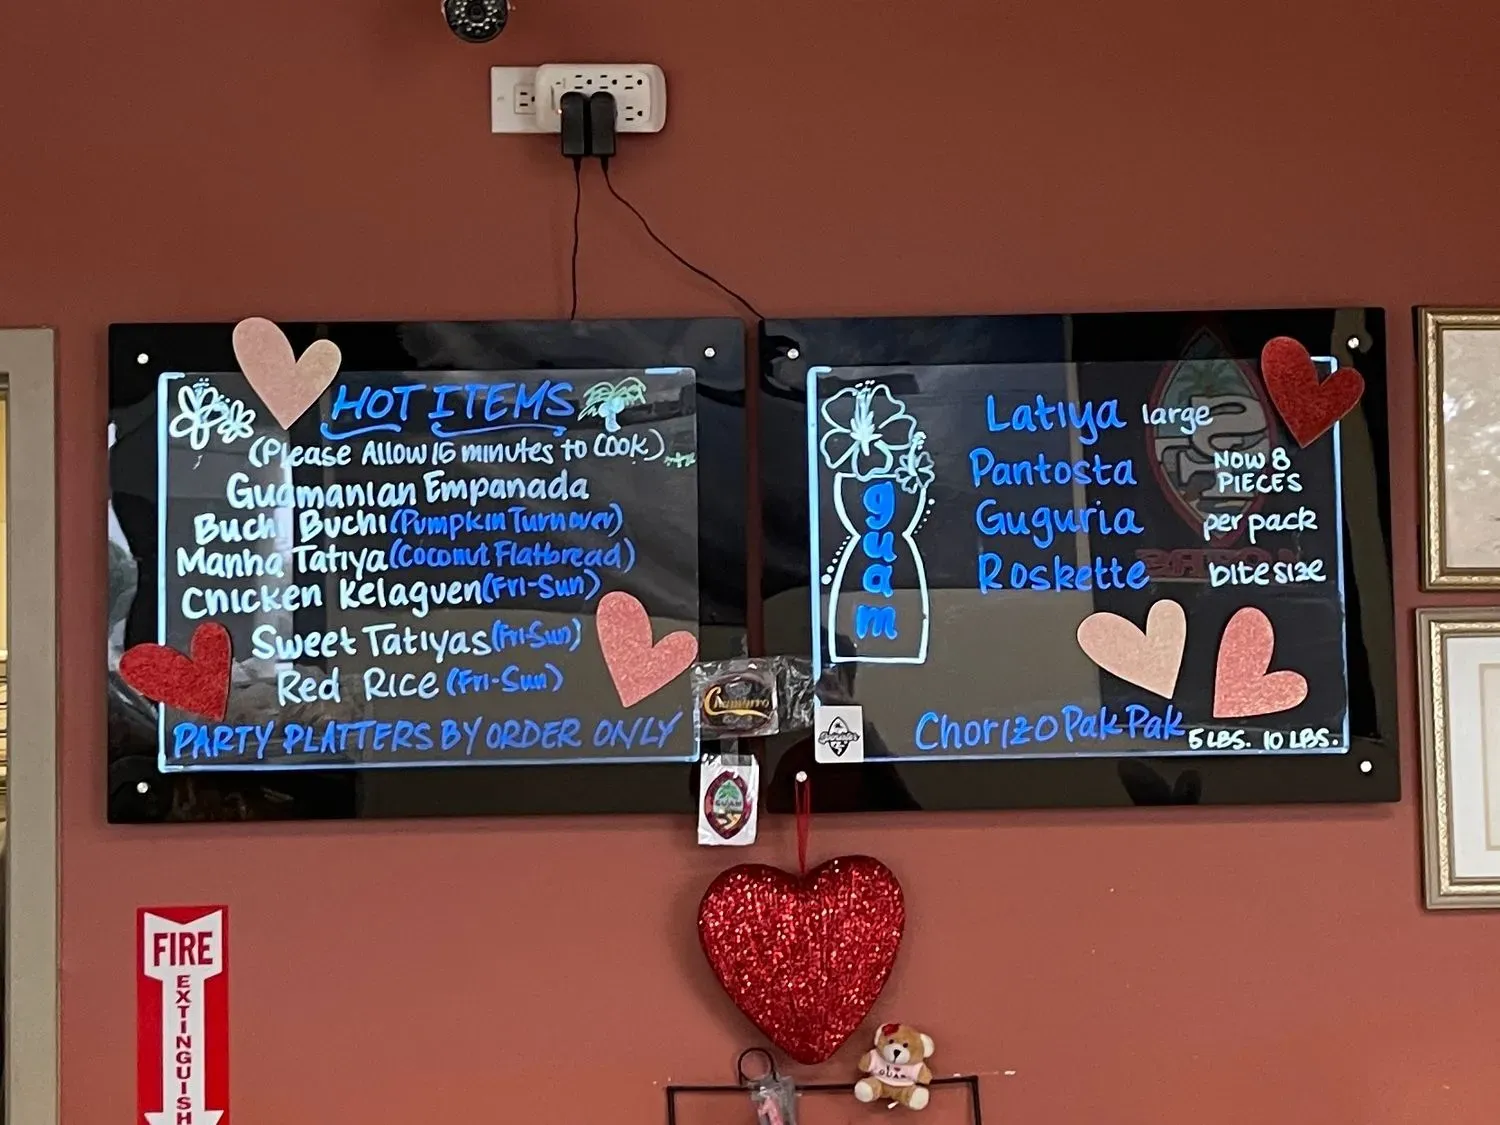 HOT ITEMS
(Please Allow 15 minutes to Cook)
Guamanian Empanada
Buchi Buchi (Pumpkin Turnover)
Manha Tatiya (Coconut Flatbread)
Chicken Kelaguen (Fri-Sun)
Sweet Tatiyas (Fri-Sun)
Red Rice (Fri-Sun)
PARTY PLATTERS BY ORDER ONLY
guam
Latiya large
Pantosta NOW 8
PIECES
Guguria per pack
Roskette bite size
Chorizo Pak Pak 5 LBS. 10 LBS.
Chamorro
GUAM
FIRE
EXTINGUISH